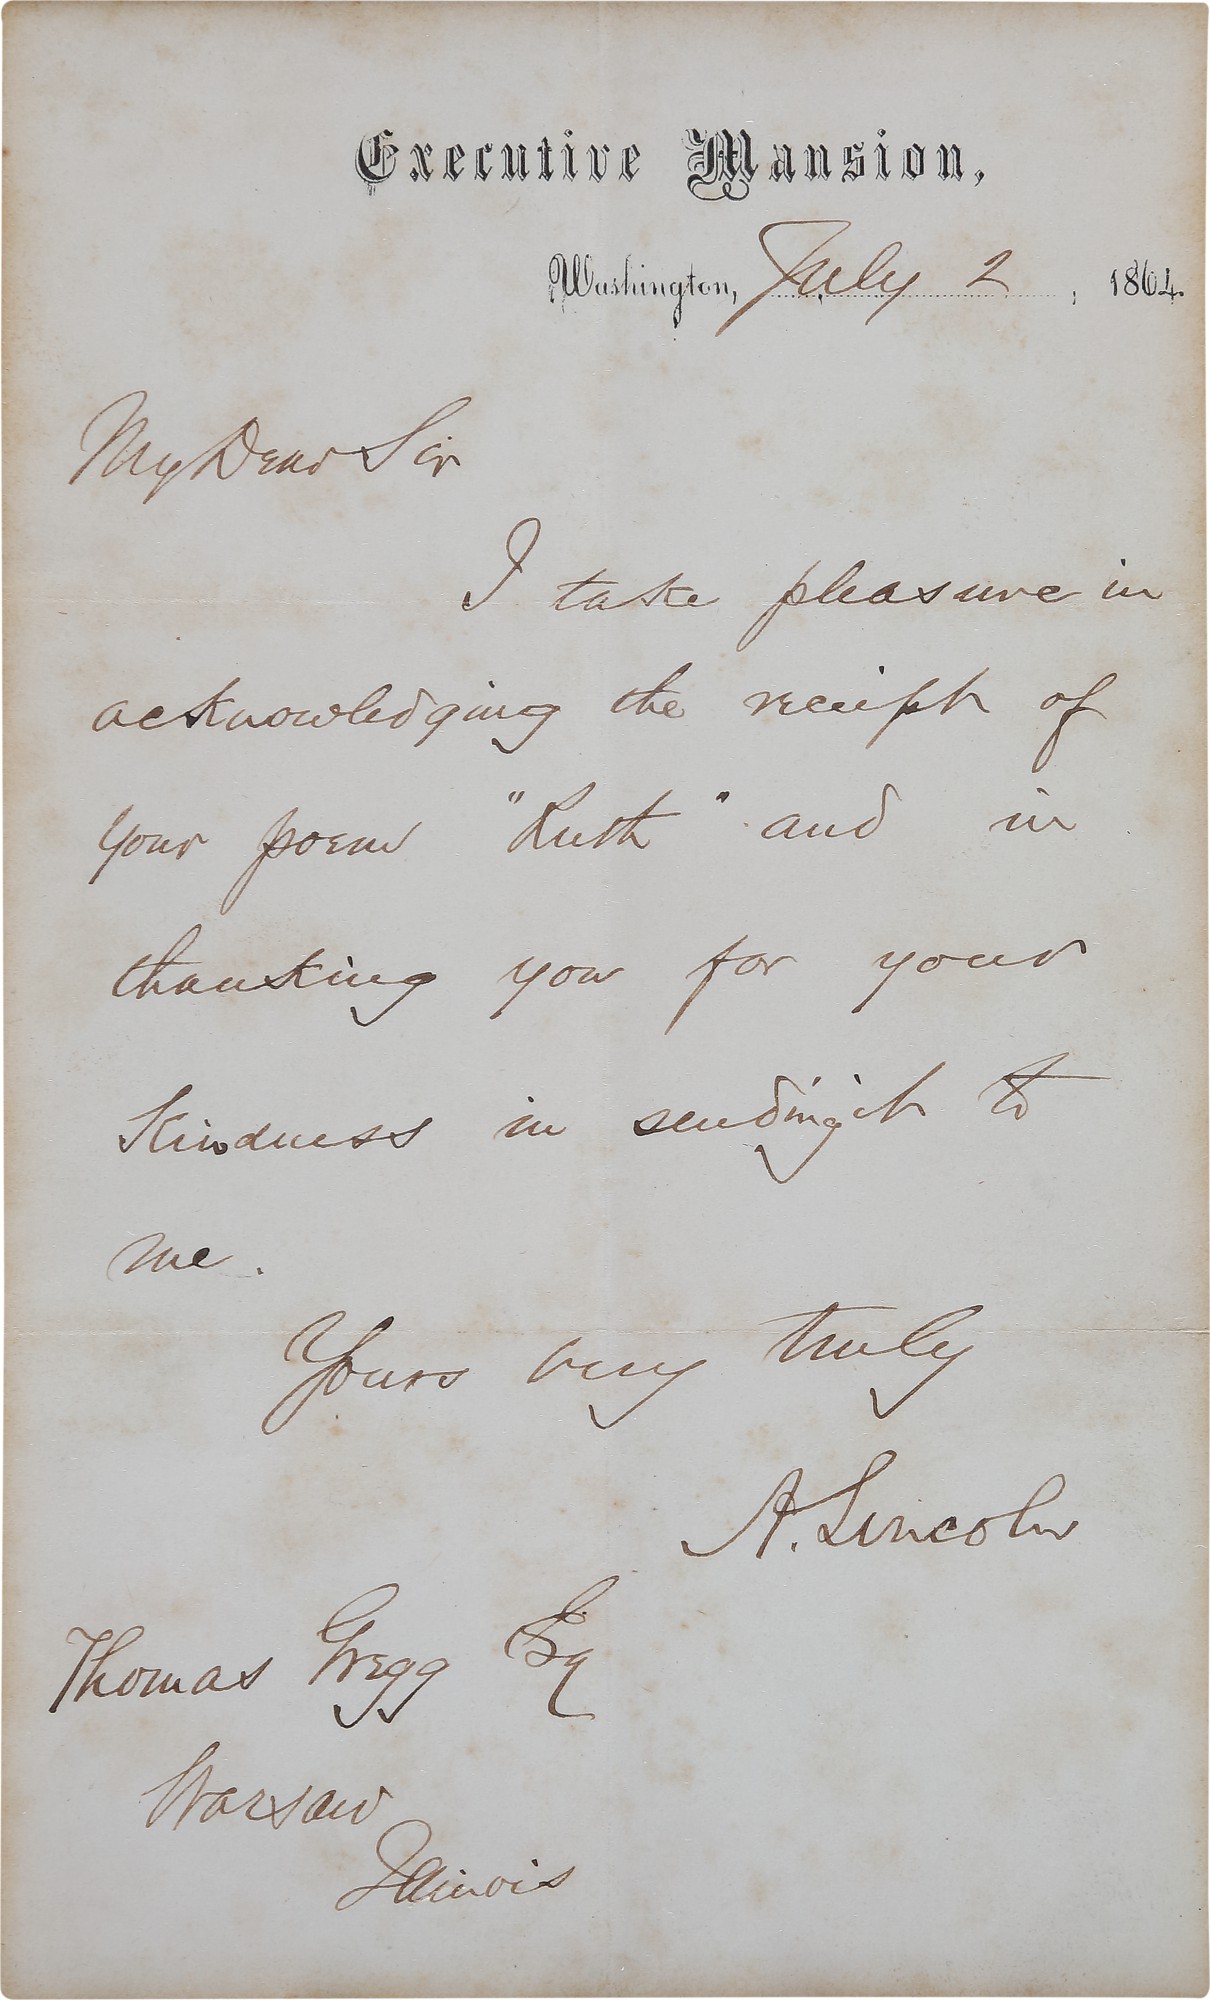 Executive Mansion,
Washington, July 2, 1864.
My Dear Sir
I take pleasure in
acknowledging the receipt of
your poem "Ruth" and in
thanking you for your
kindness in sending it to
me.
Yours very truly
A. Lincoln
Thomas Gregg Esq
Warsaw
Illinois